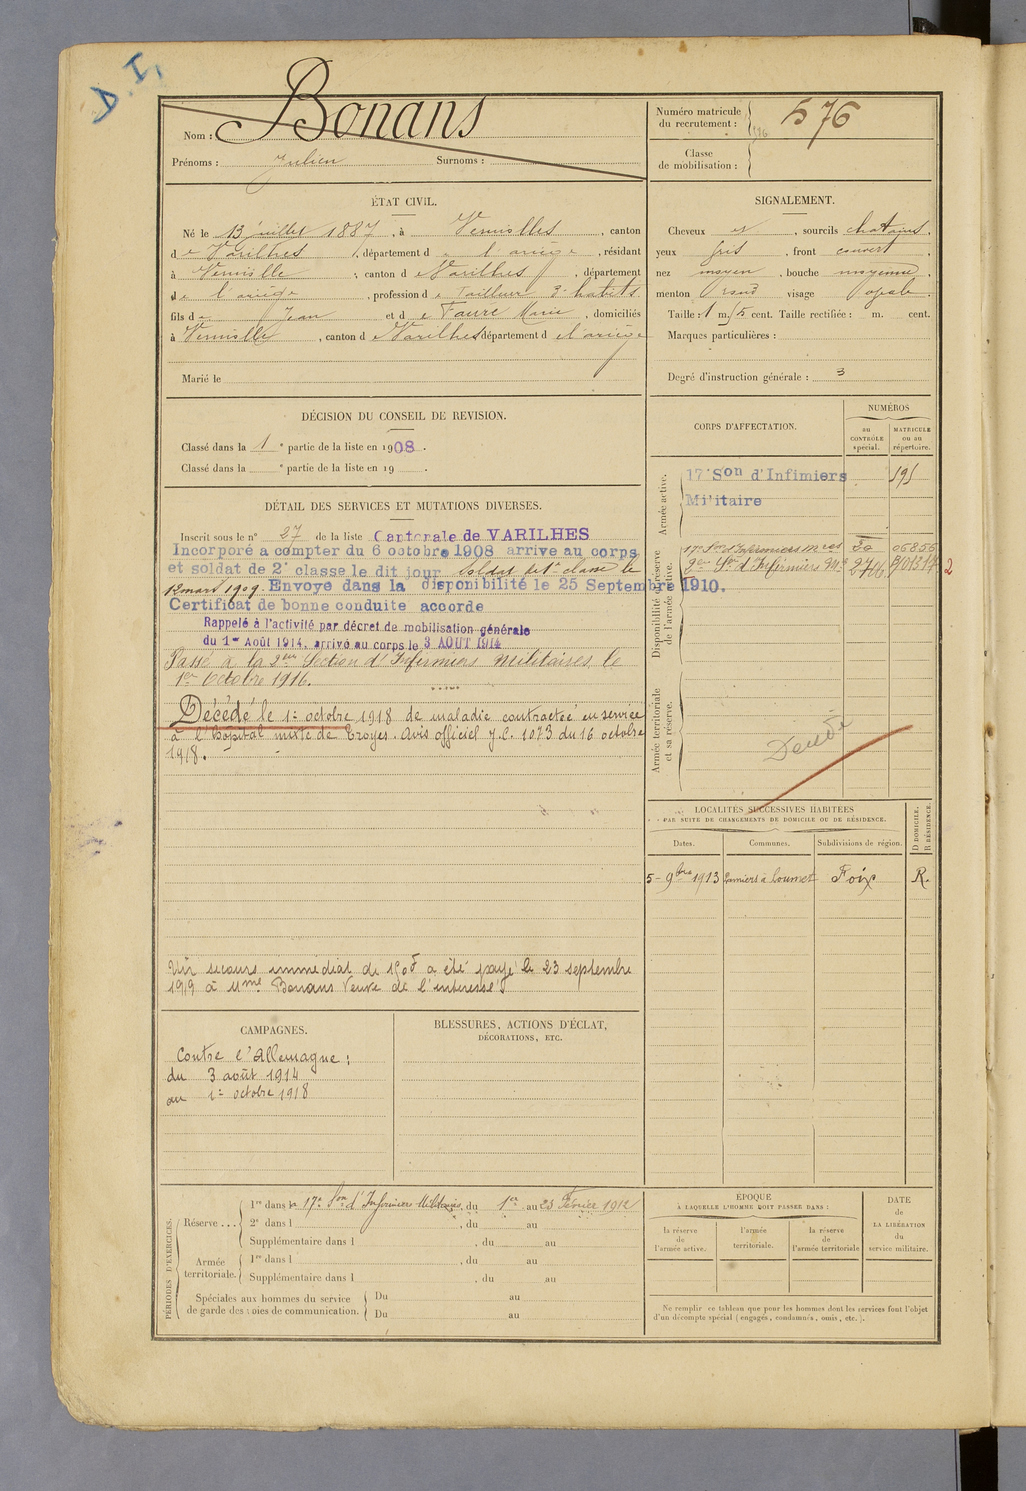 D. I.
Bonans
Nom :
Prénoms : Julien Surnoms :
Numéro matricule
du recrutement : 576
Classe
de mobilisation :
ÉTAT CIVIL.
Né le 13 juillet 1887, à Verniolles, canton
de Varilhes, département de l'ariège, résidant
à Verniolle, canton de Varilhes, département
de l'ariège, profession de Tailleur d'habits
fils de Jean et de Faure Marie, domiciliés
à Verniolle, canton de Varilhes département de l'ariège
Marié le
SIGNALEMENT.
Cheveux et, sourcils chatains,
yeux gris, front couvert,
nez moyen, bouche moyenne,
menton rond visage ovale.
Taille : 1 m. cent. Taille rectifiée : m. cent.
Marques particulières :
Degré d'instruction générale : 3
DÉCISION DU CONSEIL DE REVISION.
Classé dans la 1e partie de la liste en 1908.
Classé dans la e partie de la liste en 19 .
DÉTAIL DES SERVICES ET MUTATIONS DIVERSES.
Inscrit sous le n° 27 de la liste Cantonale de VARILHES
Incorporé a compter du 6 octobre 1908 arrive au corps
et soldat de 2e classe le dit jour soldat de 1e classe le
12 mars 1909. Envoye dans la disponibilité le 25 Septembre 1910.
Certificat de bonne conduite accorde
Rappelé à l'activité par décret de mobilisation générale
du 1er Août 1914, arrivé au corps le 3 AOUT 1914
Passé à la 2ème Section d'Infirmiers Militaires le
1er Octobre 1916.
Décédé le 1er octobre 1918 de maladie contractée en service
à l'hôpital mixte de Troyes. Avis officiel 1073 du 16 octobre
1918.
Un secours immédiat de 150F a été payé le 23 septembre
1919 à Mme Bonans Veuve de l'intéressé
CORPS D'AFFECTATION.
NUMÉROS
au
CONTRÔLE
spécial.
MATRICULE
ou au
répertoire.
Armée active.
17e Son d'Infimiers
Militaire
Disponibilité et réserve
de l'armée active.
17e Son d'Infirmiers Mres
2ème Son d'Infirmiers
2
Armée territoriale
et sa réserve.
LOCALITÉS SUCCESSIVES HABITÉES
PAR SUITE DE CHANGEMENTS DE DOMICILE OU DE RÉSIDENCE.
D DOMICILE.
R RÉSIDENCE.
Dates. Communes. Subdivisions de région.
5-9bre 1913 Pamiers Foix R.
CAMPAGNES.
Contre l'Allemagne :
du 3 août 1914
au 1er octobre 1918
BLESSURES, ACTIONS D'ÉCLAT,
DÉCORATIONS, ETC.
PÉRIODES D'EXERCICES.
Réserve ...
1re dans la 17e Son d'Infirmiers Militaires, du 1er au 23 Février 1912
2e dans l , du au
Supplémentaire dans l , du au
Armée
territoriale.
1re dans l , du au
Supplémentaire dans l , du au
Spéciales aux hommes du service
de garde des voies de communication.
Du au
Du au
EPOQUE
À LAQUELLE L'HOMME DOIT PASSER DANS :
la réserve
de
l'armée active.
l'armée
territoriale.
la réserve
de
l'armée territoriale
DATE
de
LA LIBÉRATION
du
service militaire.
Ne remplir ce tableau que pour les hommes dont les services font l'objet
d'un décompte spécial (engagés, condamnés, omis, etc.).